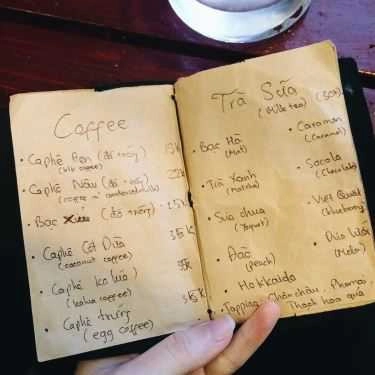 Coffee
• Caphê Đen (đá-nóng)
(blk coffee)
• Caphê Nâu (đá-nóng)
• Bạc Xỉu (đá nóng) 25k
• Caphê Cốt Dừa 35k
(coconut coffee)
• Caphê
(kahlua coffee)
• Caphê trứng 35k
(egg coffee)
Trà Sữa
(Milk tea) (30k)
• Bạc Hà
(Mint)
• Trà Xanh
(matcha)
• Sữa chua
(Yogurt)
• Đào
(peach)
• Hokkaido
• Caramen
(Caramel)
• Socola
(Chocolate)
• Việt Quất
(blueberry)
• Dưa lưới
(Melon)
• Topping: Chân châu, Phomai
Thạch hoa quả